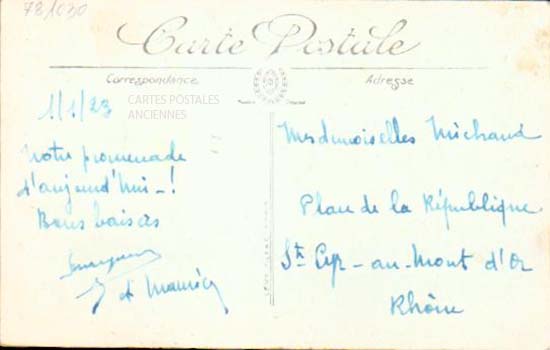 781030
Carte Postale
Correspondance
Adresse
CARTES POSTALES
ANCIENNES
1/1/23
Notre promenade
d'aujourd'hui - !
Bons baisers
et Maurice
Mesdemoiselles Michaud
Place de la République
St Cyr-au-Mont d'Or
Rhône